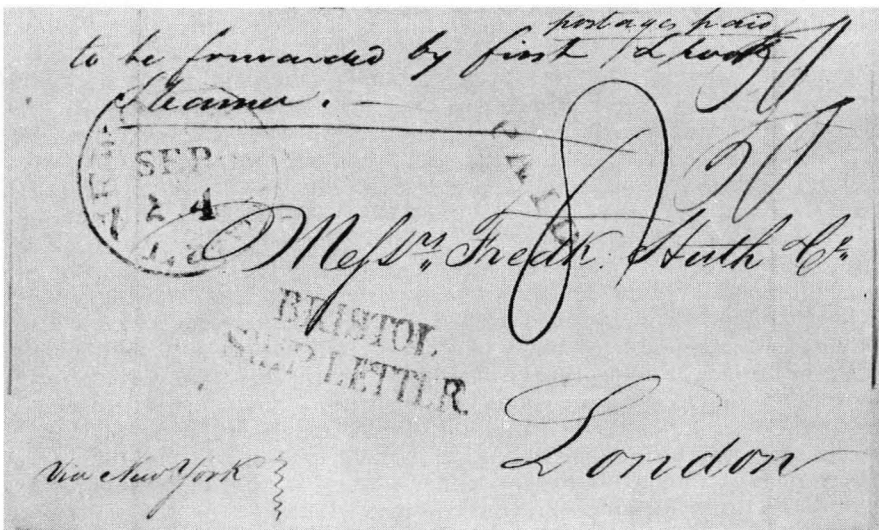 postages paid
to be forwarded by first
Steamer. —
50
PAID
SEP
24
8
Messrs. Fredk. Huth & Co.
BRISTOL
SHIP LETTER
London
Via New York